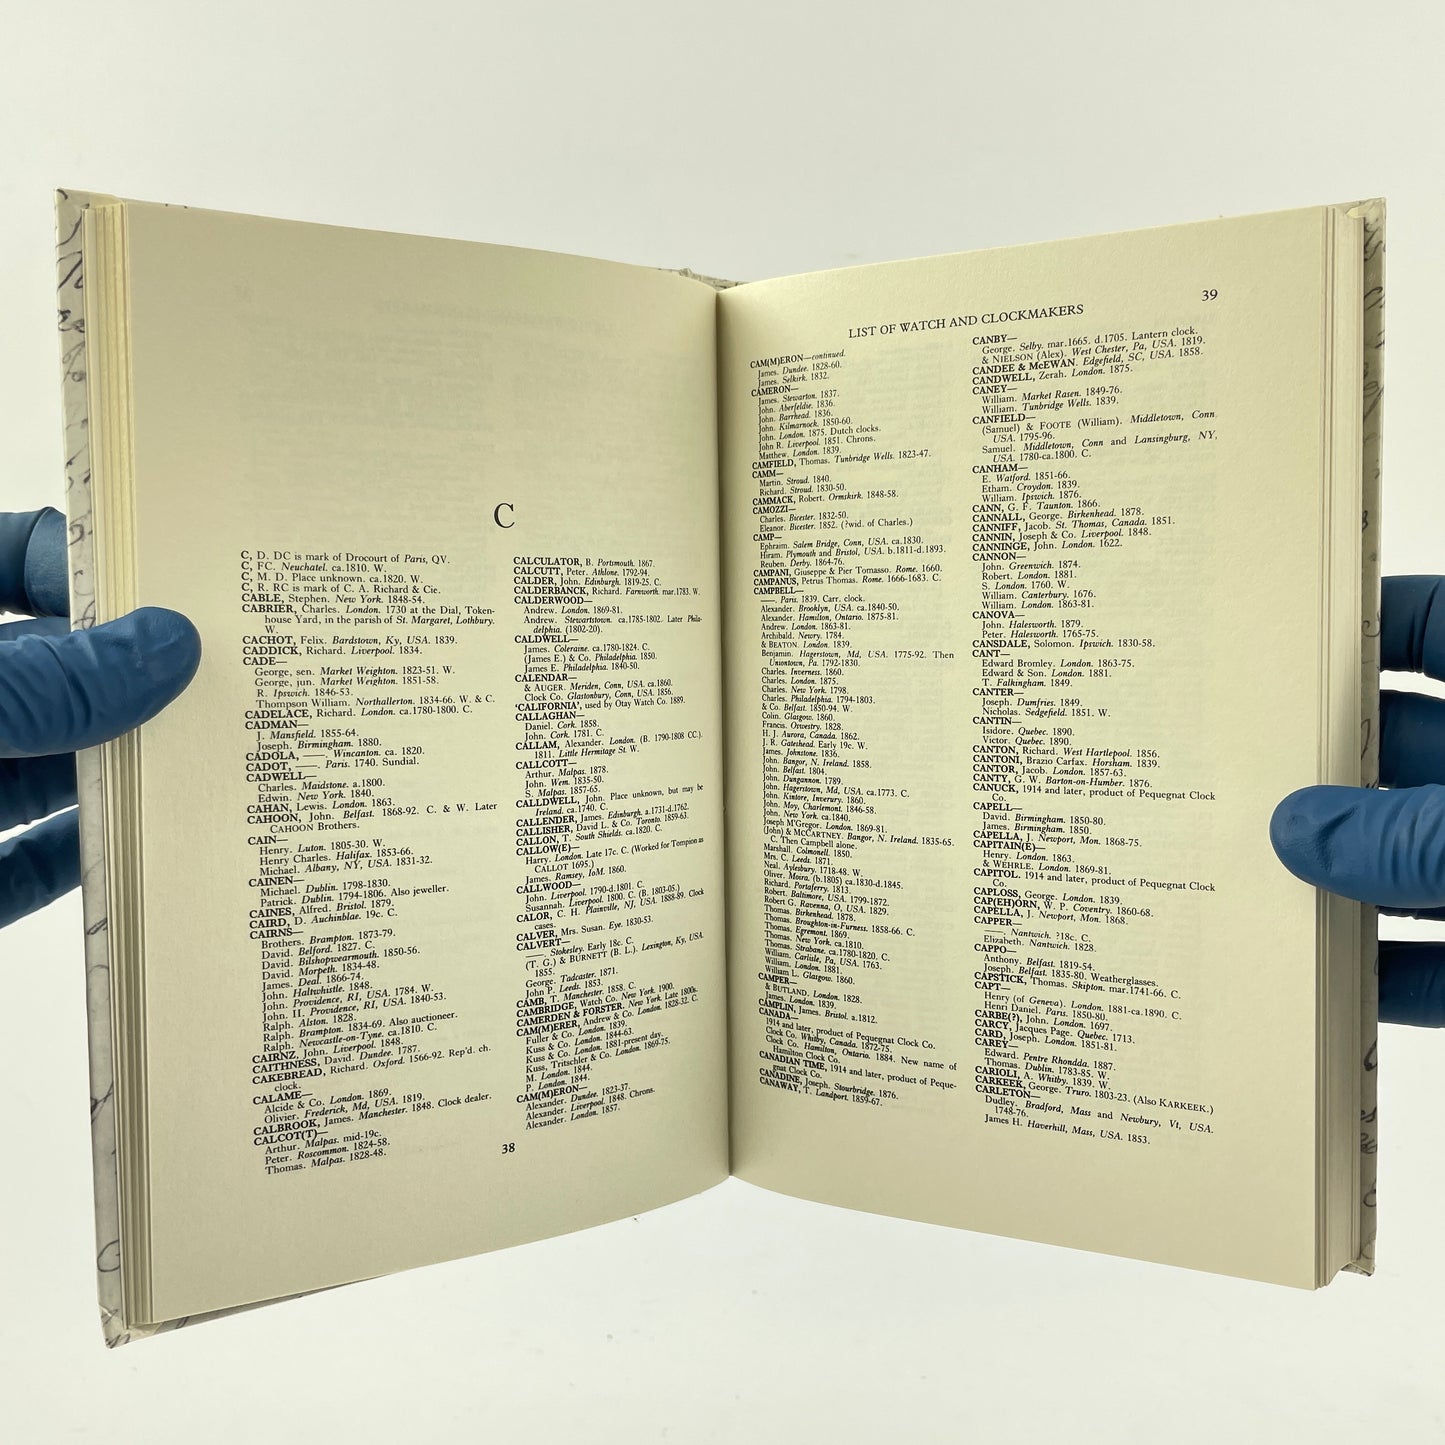 C
C, D. DC is mark of Drocourt of Paris, QV.
C, FC. Neuchatel. ca.1810. W.
C, M. D. Place unknown. ca.1820. W.
C, R. RC is mark of C. A. Richard & Cie.
CABLE, Stephen. New York. 1848-54.
CABRIER, Charles. London. 1730 at the Dial, Token-
house Yard, in the parish of St. Margaret, Lothbury.
W.
CACHOT, Felix. Bardstown, Ky, USA. 1839.
CADDICK, Richard. Liverpool. 1834.
CADE—
George, sen. Market Weighton. 1823-51. W.
George, jun. Market Weighton. 1851-58.
R. Ipswich. 1846-53.
Thompson William. Northallerton. 1834-66. W. & C.
CADELACE, Richard. London. ca.1780-1800. C.
CADMAN—
J. Mansfield. 1855-64.
Joseph. Birmingham. 1880.
CADOLA, ——. Wincanton. ca. 1820.
CADOT, ——. Paris. 1740. Sundial.
CADWELL—
Charles. Maidstone. a.1800.
Edwin. New York. 1840.
CAHAN, Lewis. London. 1863.
CAHOON, John. Belfast. 1868-92. C. & W. Later
CAHOON Brothers.
CAIN—
Henry. Luton. 1805-30. W.
Henry Charles. Halifax. 1853-66.
Michael. Albany, NY, USA. 1831-32.
CAINEN—
Michael. Dublin. 1798-1830.
Patrick. Dublin. 1794-1806. Also jeweller.
CAINES, Alfred. Bristol. 1879.
CAIRD, D. Auchinblae. 19c. C.
CAIRNS—
Brothers. Brampton. 1873-79.
David. Belford. 1827. C.
David. Bilshopwearmouth. 1850-56.
David. Morpeth. 1834-48.
James. Deal. 1866-74.
John. Haltwhistle. 1848.
John. Providence, RI, USA. 1784. W.
John. II. Providence, RI, USA. 1840-53.
Ralph. Alston. 1828.
Ralph. Brampton. 1834-69. Also auctioneer.
Ralph. Newcastle-on-Tyne. ca.1810. C.
CAIRNZ, John. Liverpool. 1848.
CAITHNESS, David. Dundee. 1787.
CAKEBREAD, Richard. Oxford. 1566-92. Rep'd. ch.
clock.
CALAME—
Alcide & Co. London. 1869.
Olivier. Frederick, Md, USA. 1819.
CALBROOK, James. Manchester. 1848. Clock dealer.
CALCOT(T)—
Arthur. Malpas. mid-19c.
Peter. Roscommon. 1824-58.
Thomas. Malpas. 1828-48.
CALCULATOR, B. Portsmouth. 1867.
CALCUTT, Peter. Athlone. 1792-94.
CALDER, John. Edinburgh. 1819-25. C.
CALDERBANCK, Richard. Farnworth. mar.1783. W.
CALDERWOOD—
Andrew. London. 1869-81.
Andrew. Stewartstown. ca.1785-1802. Later Phila-
delphia. (1802-20).
CALDWELL—
James. Coleraine. ca.1780-1824. C.
(James E.) & Co. Philadelphia. 1850.
James E. Philadelphia. 1840-50.
CALENDAR—
& AUGER. Meriden, Conn, USA. ca.1860.
Clock Co. Glastonbury, Conn, USA. 1856.
'CALIFORNIA', used by Otay Watch Co. 1889.
CALLAGHAN—
Daniel. Cork. 1858.
John. Cork. 1781. C.
CALLAM, Alexander. London. (B. 1790-1808 CC.).
1811. Little Hermitage St. W.
CALLCOTT—
Arthur. Malpas. 1878.
John. Wem. 1835-50.
S. Malpas. 1857-65.
CALLDWELL, John. Place unknown, but may be
Ireland. ca.1740. C.
CALLENDER, James. Edinburgh. a.1731-d.1762.
CALLISHER, David L. & Co. Toronto. 1859-63.
CALLON, T. South Shields. ca.1820. C.
CALLOW(E)—
Harry. London. Late 17c. C. (Worked for Tompion as
CALLOT 1695.)
James. Ramsey, IoM. 1860.
CALLWOOD—
John. Liverpool. 1790-d.1801. C.
Susannah. Liverpool. 1800. C. (B. 1803-05.)
CALOR, C. H. Plainville, NJ, USA. 1888-89. Clock
cases.
CALVER, Mrs. Susan. Eye. 1830-53.
CALVERT—
——. Stokesley. Early 18c. C.
(T. G.) & BURNETT (B. L.). Lexington, Ky, USA.
1855.
George. Tadcaster. 1871.
John P. Leeds. 1853.
CAMB, T. Manchester. 1858. C.
CAMBRIDGE, Watch Co. New York. 1900.
CAMERDEN & FORSTER. New York. Late 1800s.
CAM(M)ERER, Andrew & Co. London. 1828-32. C.
Fuller & Co. London. 1839.
Kuss & Co. London. 1844-63.
Kuss & Co. London. 1881-present day.
Kuss, Tritschler & Co. London. 1869-75.
M. London. 1844.
P. London. 1844.
CAM(M)ERON—
Alexander. Dundee. 1823-37.
Alexander. Liverpool. 1848. Chrons.
Alexander. London. 1857.
38
LIST OF WATCH AND CLOCKMAKERS
39
CAM(M)ERON—continued.
James. Dundee. 1828-60.
James. Selkirk. 1832.
CAMERON—
James. Stewarton. 1837.
John. Aberfeldie. 1836.
John. Barrhead. 1836.
John. Kilmarnock. 1850-60.
John. London. 1875. Dutch clocks.
John R. Liverpool. 1851. Chrons.
Matthew. London. 1839.
CAMFIELD, Thomas. Tunbridge Wells. 1823-47.
CAMM—
Martin. Stroud. 1840.
Richard. Stroud. 1830-50.
CAMMACK, Robert. Ormskirk. 1848-58.
CAMOZZI—
Charles. Bicester. 1832-50.
Eleanor. Bicester. 1852. (?wid. of Charles.)
CAMP—
Ephraim. Salem Bridge, Conn, USA. ca.1830.
Hiram. Plymouth and Bristol, USA. b.1811-d.1893.
Reuben. Derby. 1864-76.
CAMPANI, Giuseppe & Pier Tomasso. Rome. 1660.
CAMPANUS, Petrus Thomas. Rome. 1666-1683. C.
CAMPBELL—
——. Paris. 1839. Carr. clock.
Alexander. Brooklyn, USA. ca.1840-50.
Alexander. Hamilton, Ontario. 1875-81.
Andrew. London. 1863-81.
Archibald. Newry. 1784.
& BEATON. London. 1839.
Benjamin. Hagerstown, Md, USA. 1775-92. Then
Uniontown, Pa. 1792-1830.
Charles. Inverness. 1860.
Charles. London. 1875.
Charles. New York. 1798.
Charles. Philadelphia. 1794-1803.
& Co. Belfast. 1850-94. W.
Colin. Glasgow. 1860.
Francis. Oswestry. 1828.
H. J. Aurora, Canada. 1862.
J. R. Gateshead. Early 19c. W.
James. Johnstone. 1836.
John. Bangor, N. Ireland. 1858.
John. Belfast. 1804.
John. Dungannon. 1789.
John. Hagerstown, Md, USA. ca.1773. C.
John. Kintore, Inverury. 1860.
John. Moy, Charlemont. 1846-58.
John. New York. ca.1840.
Joseph M'Gregor. London. 1869-81.
(John) & McCARTNEY. Bangor, N. Ireland. 1835-65.
C. Then Campbell alone.
Marshall. Colmonell. 1850.
Mrs. C. Leeds. 1871.
Neal. Aylesbury. 1718-48. W.
Oliver. Moira. (b.1805) ca.1830-d.1845.
Richard. Portaferry. 1813.
Robert. Baltimore, USA. 1799-1872.
Robert G. Ravenna, O, USA. 1829.
Thomas. Birkenhead. 1878.
Thomas. Broughton-in-Furness. 1858-66. C.
Thomas. Egremont. 1869.
Thomas. New York. ca.1810.
Thomas. Strabane. ca.1780-1820. C.
William. Carlisle, Pa, USA. 1763.
William. London. 1881.
William L. Glasgow. 1860.
CAMPER—
& BUTLAND. London. 1828.
James. London. 1839.
CAMPLIN, James. Bristol. a.1812.
CANADA—
1914 and later, product of Pequegnat Clock Co.
Clock Co. Whitby, Canada. 1872-75.
Clock Co. Hamilton, Ontario. 1884. New name of
Hamilton Clock Co.
CANADIAN TIME, 1914 and later, product of Peque-
gnat Clock Co.
CANADINE, Joseph. Stourbridge. 1876.
CANAWAY, T. Landport. 1859-67.
CANBY—
George. Selby. mar.1665. d.1705. Lantern clock.
& NIELSON (Alex). West Chester, Pa, USA. 1819.
CANDEE & McEWAN. Edgefield, SC, USA. 1858.
CANDWELL, Zerah. London. 1875.
CANEY—
William. Market Rasen. 1849-76.
William. Tunbridge Wells. 1839.
CANFIELD—
(Samuel) & FOOTE (William). Middletown, Conn
USA. 1795-96.
Samuel. Middletown, Conn and Lansingburg, NY,
USA. 1780-ca.1800. C.
CANHAM—
E. Watford. 1851-66.
Etham. Croydon. 1839.
William. Ipswich. 1876.
CANN, G. F. Taunton. 1866.
CANNALL, George. Birkenhead. 1878.
CANNIFF, Jacob. St. Thomas, Canada. 1851.
CANNIN, Joseph & Co. Liverpool. 1848.
CANNINGE, John. London. 1622.
CANNON—
John. Greenwich. 1874.
Robert. London. 1881.
S. London. 1760. W.
William. Canterbury. 1676.
William. London. 1863-81.
CANOVA—
John. Halesworth. 1879.
Peter. Halesworth. 1765-75.
CANSDALE, Solomon. Ipswich. 1830-58.
CANT—
Edward Bromley. London. 1863-75.
Edward & Son. London. 1881.
T. Falkingham. 1849.
CANTER—
Joseph. Dumfries. 1849.
Nicholas. Sedgefield. 1851. W.
CANTIN—
Isidore. Quebec. 1890.
Victor. Quebec. 1890.
CANTON, Richard. West Hartlepool. 1856.
CANTONI, Brazio Carfax. Horsham. 1839.
CANTOR, Jacob. London. 1857-63.
CANTY, G. W. Barton-on-Humber. 1876.
CANUCK, 1914 and later, product of Pequegnat Clock
Co.
CAPELL—
David. Birmingham. 1850-80.
James. Birmingham. 1850.
CAPELLA, J. Newport, Mon. 1868-75.
CAPITAIN(E)—
Henry. London. 1863.
& WEHRLE. London. 1869-81.
CAPITOL. 1914 and later, product of Pequegnat Clock
Co.
CAPLOSS, George. London. 1839.
CAP(EH)ORN, W. P. Coventry. 1860-68.
CAPELLA, J. Newport, Mon. 1868.
CAPPER—
——. Nantwich. ?18c. C.
Elizabeth. Nantwich. 1828.
CAPPO—
Anthony. Belfast. 1819-54.
Joseph. Belfast. 1835-80. Weatherglasses.
CAPSTICK, Thomas. Skipton. mar.1741-66. C.
CAPT—
Henry (of Geneva). London. 1881-ca.1890. C.
Henri Daniel. Paris. 1850-80.
CARBE(?), John. London. 1697.
CARCY, Jacques Page. Quebec. 1713.
CARD, Joseph. London. 1851-81.
CAREY—
Edward. Pentre Rhondda. 1887.
Thomas. Dublin. 1783-85. W.
CARIOLI, A. Whitby. 1839. W.
CARKEEK, George. Truro. 1803-23. (Also KARKEEK.)
CARLETON—
Dudley. Bradford, Mass and Newbury, Vt, USA.
1748-76.
James H. Haverhill, Mass, USA. 1853.